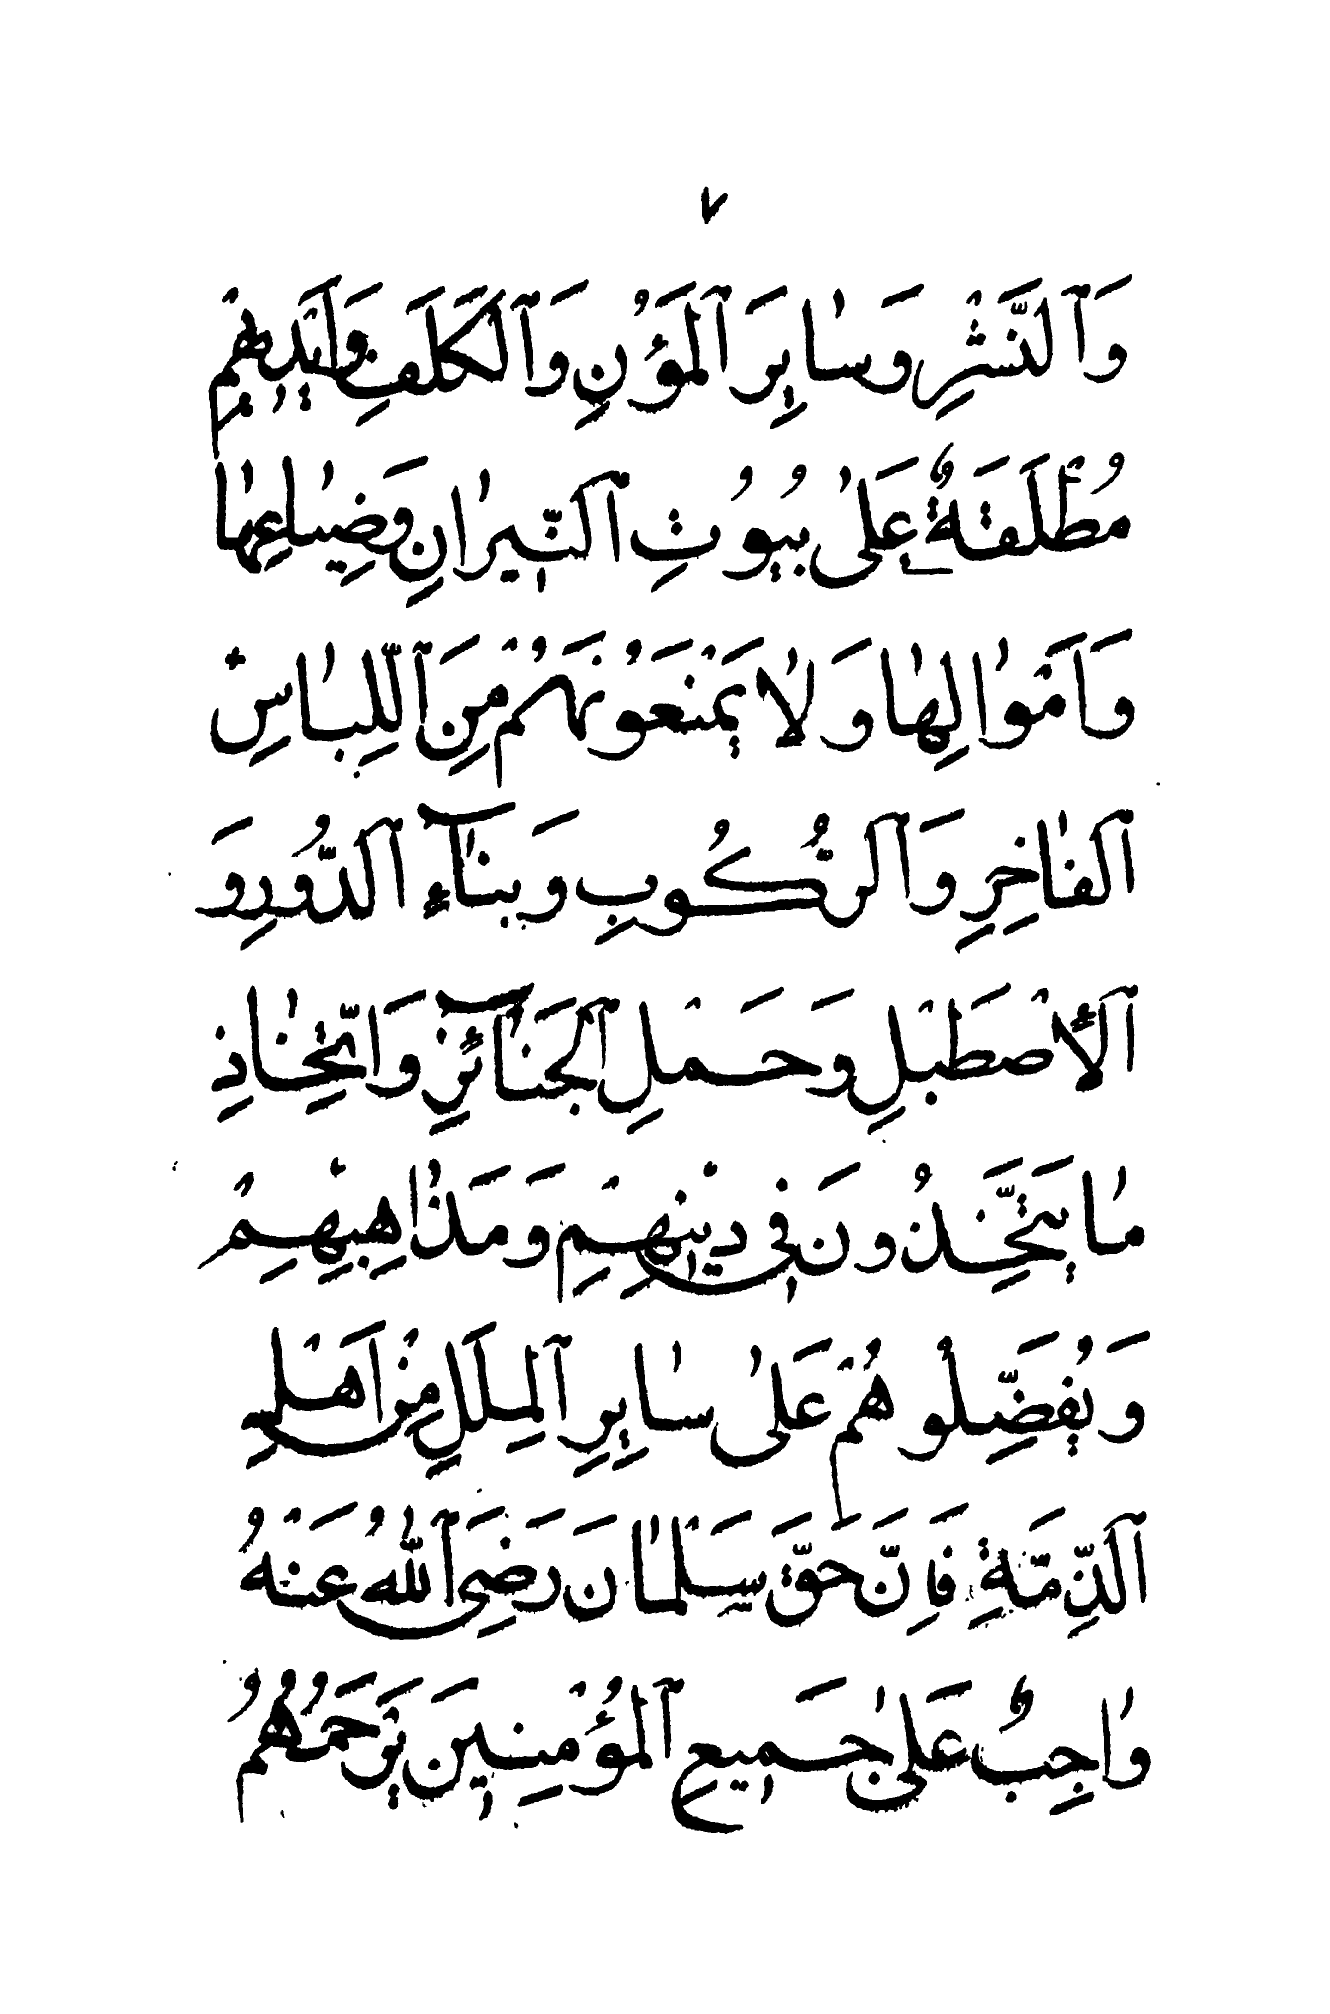 ٧
وَٱلنَّشْرِ وَسٰايِرَ ٱلْمَؤُنِ وَٱلْكَلَفِ وَأَيْدِيهِمْ
مُطْلَقَةٌ عَلىٰ بُيُوتِ ٱلنّيرٰانِ وَضِيٰاعِهٰا
وَاَمْوٰالِهٰا وَلٰا يَمْنَعُونَهُمْ مِنَ ٱللِّبٰاسِ
ٱلفٰاخِرِ وَٱلرُّكُوبِ وَبِنٰآءِ ٱلدُّورِ وَ
ٱلْأَصْطَبْلِ وَحَمْلِ ٱلجَنٰآئِزِ وَاتِّخٰاذِ
مٰا يَتَّخِذُونَ فِي دِيْنِهِمْ وَمَذٰاهِبِهِمْ
وَيُفَضِّلُوهُمْ عَلىٰ سٰايِرِ ٱلمِلَلِ مِنْ اَهْلِ
ٱلذِّمَّةِ فَاِنَّ حَقَّ سَلْمٰانَ رَضِيَ ٱللّٰهُ عَنْهُ
وٰاجِبٌ عَلىٰ جَمِيعِ ٱلْمُؤْمِنِينَ يَرْحَمُهُمُ